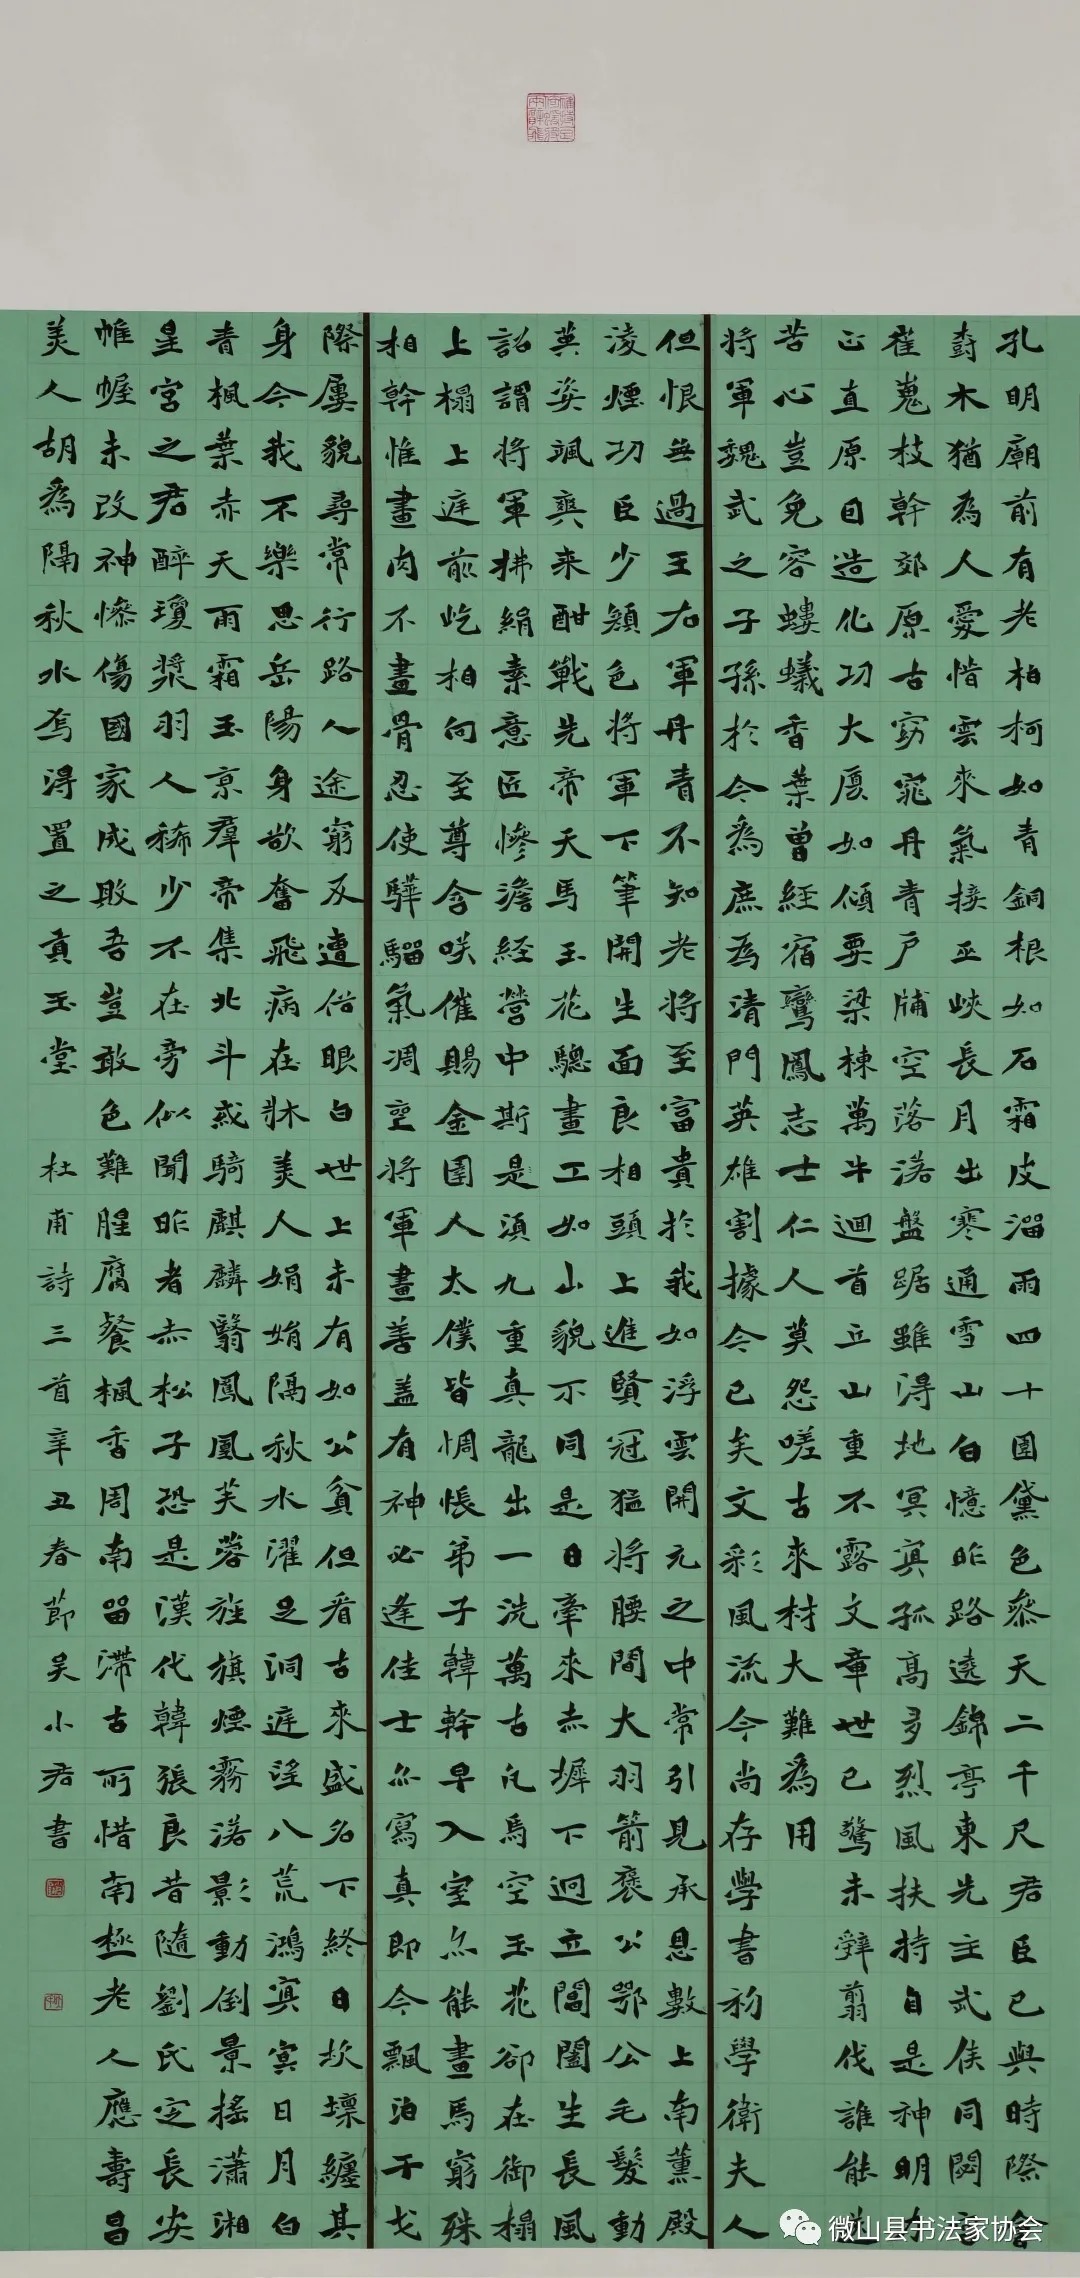 孔明廟前有老柏柯如青銅根如石霜皮溜雨四十圍黛色參天二千尺君臣已與時際會
樹木猶為人愛惜雲來氣接巫峽長月出寒通雪山白憶昨路遠錦亭東先主武侯同閟宮
崔嵬枝幹郊原古窈窕丹青戶牖空落落盤踞雖得地冥冥孤高多烈風扶持自是神明力
正直原因造化功大廈如傾要梁棟萬牛迴首丘山重不露文章世已驚未辭翦伐誰能送
苦心豈免容螻蟻香葉曾經宿鸞鳳志士仁人莫怨嗟古來材大難為用
將軍魏武之子孫於今為庶為清門英雄割據今已矣文彩風流今尚存學書初學衛夫人
但恨無過王右軍丹青不知老將至富貴於我如浮雲開元之中常引見承恩數上南薰殿
淩煙功臣少顏色將軍下筆開生面良相頭上進賢冠猛將腰間大羽箭褒公鄂公毛髮動
英姿颯爽来酣戰先帝天馬玉花驄畫工如山貌不同是日牽來赤墀下迥立閶闔生長風
詔謂將軍拂絹素意匠慘澹經營中斯是須九重真龍出一洗萬古凡馬空玉花卻在御榻
上榻上庭前屹相向至尊含咲催賜金圉人太僕皆惆悵弟子韓幹早入室亦能畫馬窮殊
相幹惟畫肉不畫骨忍使驊騮氣凋喪將軍畫善蓋有神必逢佳士亦寫真即今飄泊干戈
際屢貌尋常行路人途窮反遭俗眼白世上未有如公貧但看古來盛名下終日坎壈纏其
身今我不樂思岳陽身欲奮飛病在牀美人娟娟隔秋水濯足洞庭望八荒鴻冥冥日月白
青楓葉赤天雨霜玉京羣帝集北斗或騎麒麟翳鳳凰芙蓉旌旗煙霧落影動倒景搖瀟湘
星宮之君醉瓊漿羽人稀少不在旁似聞昨者赤松子恐是漢代韓張良昔隨劉氏定長安
帷幄未改神慘傷國家成敗吾豈敢色難腥腐餐楓香周南留滯古所惜南極老人應壽昌
美人胡為隔秋水焉得置之貢玉堂 杜甫詩三首辛丑春節吳小君書
微山县书法家协会